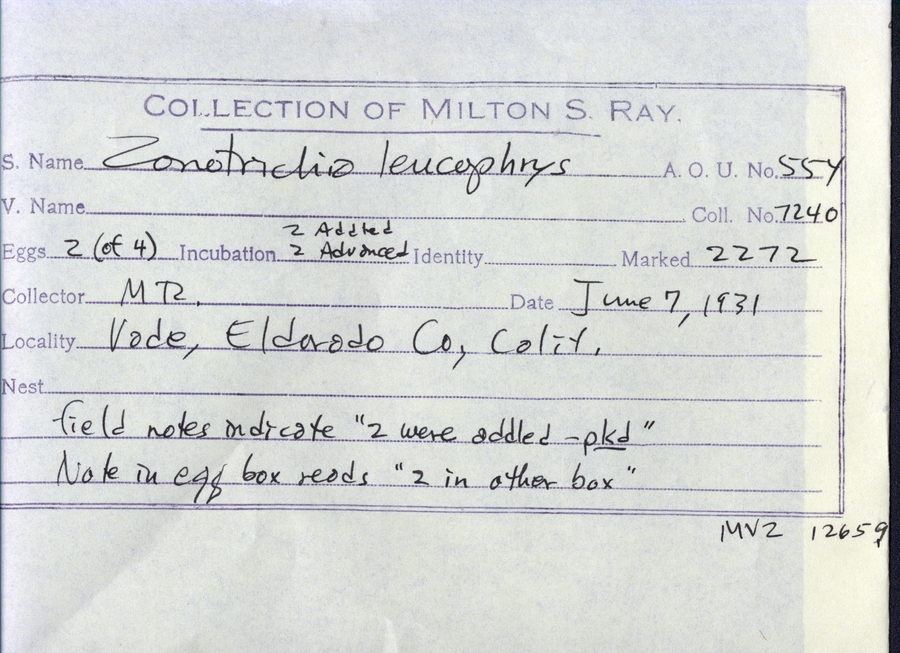 COLLECTION OF MILTON S. RAY.
S. Name Zonotrichia leucophrys A. O. U. No. 554
V. Name Coll. No. 7240
2 Addled
Eggs 2 (of 4) Incubation 2 Advanced Identity Marked 2272
Collector MR. Date June 7, 1931
Locality Vade, Eldorado Co, Calif.
Nest
field notes indicate "2 were addled - pkd"
Note in egg box reads "2 in other box"
MVZ 12659